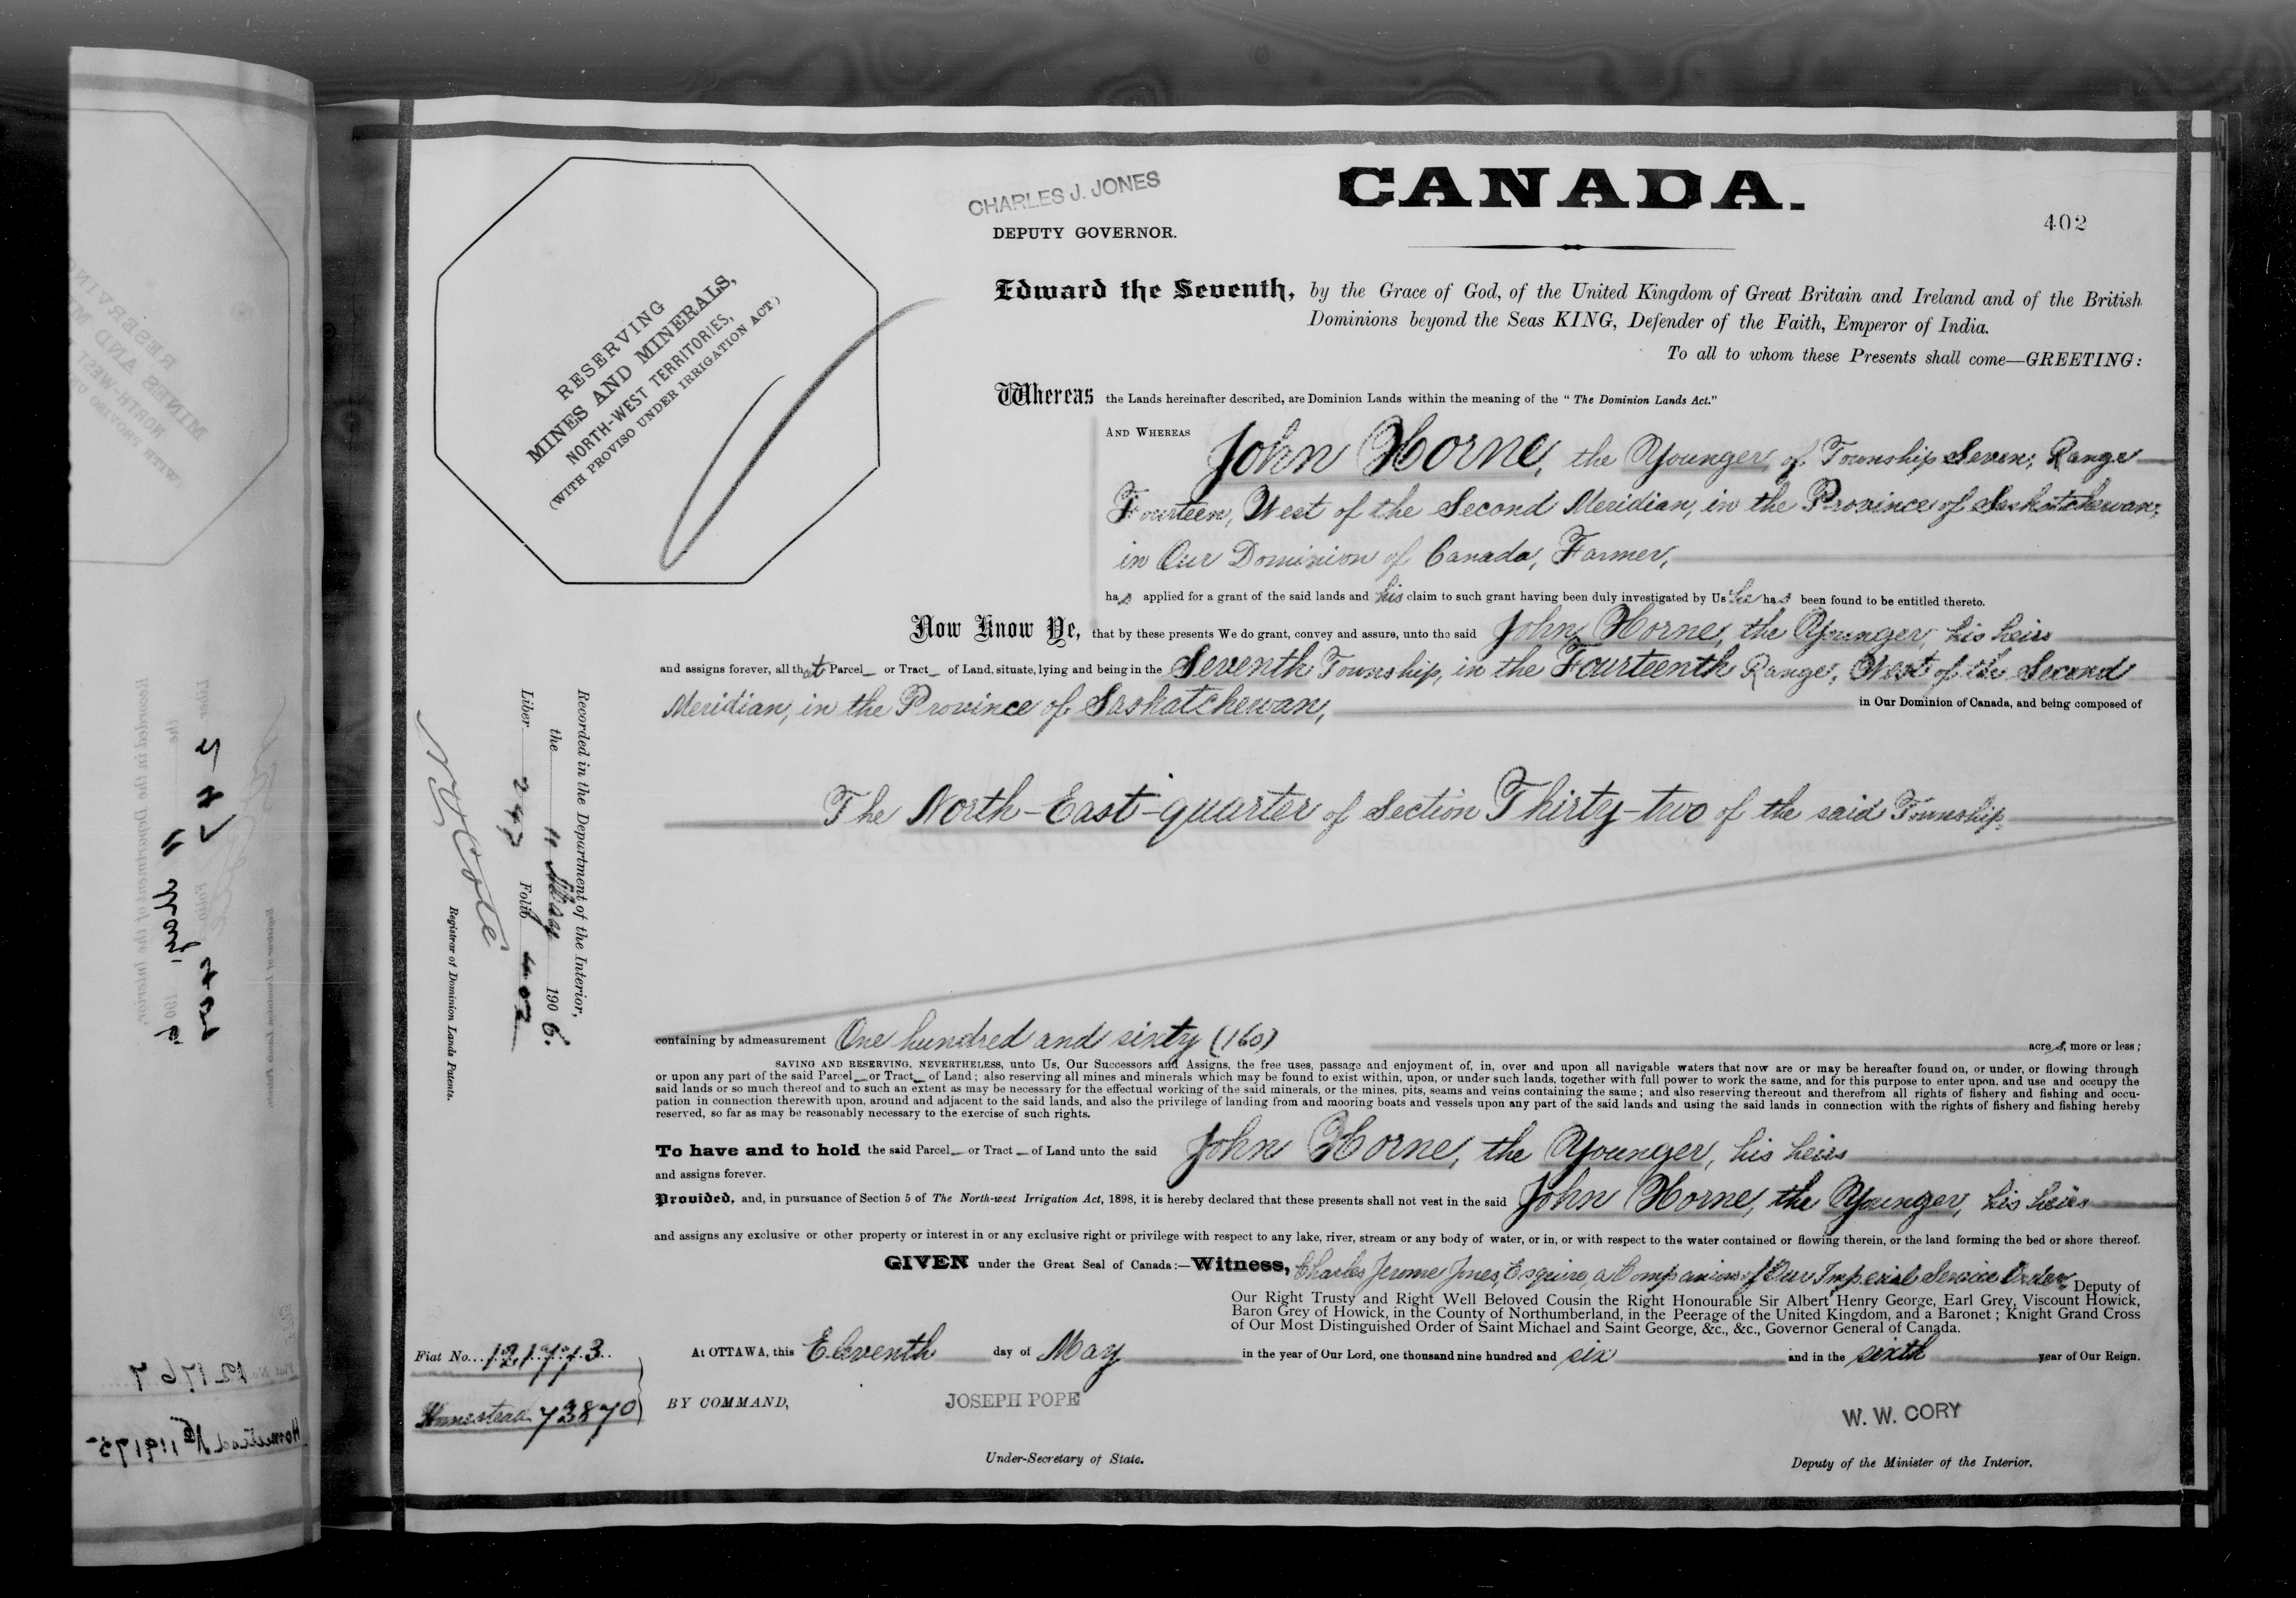 CHARLES J. JONES
DEPUTY GOVERNOR.
CANADA.
402
RESERVING
MINES AND MINERALS,
NORTH-WEST TERRITORIES,
(WITH PROVISO UNDER IRRIGATION ACT.)
Edward the Seventh, by the Grace of God, of the United Kingdom of Great Britain and Ireland and of the British
Dominions beyond the Seas KING, Defender of the Faith, Emperor of India.
To all to whom these Presents shall come—GREETING:
Whereas the Lands hereinafter described, are Dominion Lands within the meaning of the "The Dominion Lands Act."
AND WHEREAS John Horne, the Younger, of Township Seven, Range
Fourteen, West of the Second Meridian, in the Province of Saskatchewan,
in Our Dominion of Canada, Farmer,
has applied for a grant of the said lands and his claim to such grant having been duly investigated by Us he has been found to be entitled thereto.
Now Know Ye, that by these presents We do grant, convey and assure, unto the said John Horne, the Younger, his heirs
and assigns forever, all that Parcel or Tract of Land, situate, lying and being in the Seventh Township, in the Fourteenth Range, West of the Second
Meridian, in the Province of Saskatchewan, in Our Dominion of Canada, and being composed of
The North-East-quarter of Section Thirty-two of the said Township,
containing by admeasurement One hundred and sixty (160) acres, more or less;
SAVING AND RESERVING, NEVERTHELESS, unto Us, Our Successors and Assigns, the free uses, passage and enjoyment of, in, over and upon all navigable waters that now are or may be hereafter found on, or under, or flowing through
or upon any part of the said Parcel or Tract of Land; also reserving all mines and minerals which may be found to exist within, upon, or under such lands, together with full power to work the same, and for this purpose to enter upon, and use and occupy the
said lands or so much thereof and to such an extent as may be necessary for the effectual working of the said minerals, or the mines, pits, seams and veins containing the same; and also reserving thereout and therefrom all rights of fishery and fishing and occu-
pation in connection therewith upon, around and adjacent to the said lands, and also the privilege of landing from and mooring boats and vessels upon any part of the said lands and using the said lands in connection with the rights of fishery and fishing hereby
reserved, so far as may be reasonably necessary to the exercise of such rights.
To have and to hold the said Parcel or Tract of Land unto the said John Horne, the Younger, his heirs
and assigns forever.
Provided, and, in pursuance of Section 5 of The North-west Irrigation Act, 1898, it is hereby declared that these presents shall not vest in the said John Horne, the Younger, his heirs
and assigns any exclusive or other property or interest in or any exclusive right or privilege with respect to any lake, river, stream or any body of water, or in, or with respect to the water contained or flowing therein, or the land forming the bed or shore thereof.
GIVEN under the Great Seal of Canada:—Witness, Charles Jerome Jones, Esquire, a Companion of Our Imperial Service Order, Deputy of
Our Right Trusty and Right Well Beloved Cousin the Right Honourable Sir Albert Henry George, Earl Grey, Viscount Howick,
Baron Grey of Howick, in the County of Northumberland, in the Peerage of the United Kingdom, and a Baronet; Knight Grand Cross
of Our Most Distinguished Order of Saint Michael and Saint George, &c., &c., Governor General of Canada.
At OTTAWA, this Eleventh day of May in the year of Our Lord, one thousand nine hundred and six and in the sixth year of Our Reign.
BY COMMAND,
JOSEPH POPE
Under-Secretary of State.
W. W. CORY
Deputy of the Minister of the Interior.
Recorded in the Department of the Interior,
the 11 May 1906.
Liber 247 Folio 402
N O Coté
Registrar of Dominion Lands Patents.
Fiat No.
Homestead 73870